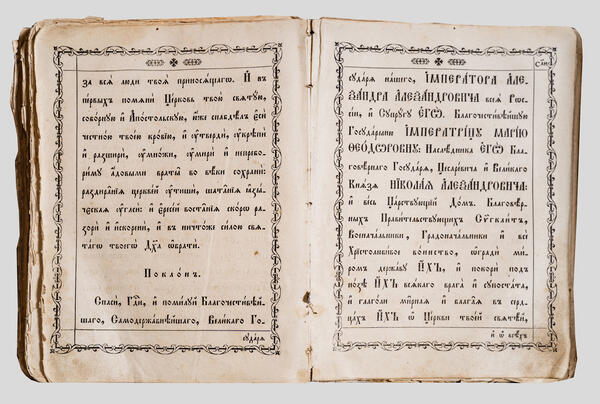 за всѧ люди твоѧ приносѧщаго. И҆ въ
первыхъ помѧни Церковь твою свѧтꙋю,
соборнꙋю и҆ А҆постольскꙋю, ю҆же снабдѣлъ є҆си
честною твоею кровїю, и҆ ᲂу҆тверди, ᲂу҆крѣпи
и҆ разшири, ᲂу҆множи, ᲂу҆мири и҆ непребо-
римꙋ а҆довыми враты во вѣки сохрани:
раздиранїѧ церквей ᲂу҆тиши, шатанїѧ ꙗ҆зы-
ческаѧ ᲂу҆гаси: и҆ є҆ресей востанїѧ скорѡ ра-
зори и҆ и҆скорени, и҆ въ ничтоже силою свѧ-
тагѡ твоегѡ Дх҃а ѡ҆брати.
Поклонъ.
Спаси, Гдⷭ҇и, и҆ помилꙋй Благочестивѣй-
шаго, Самодержавнѣйшаго, Великаго Го-
сꙋдарѧ
сꙋдарѧ нашего, І҆МПЕРАТОРА А҆ЛЕ-
Ѯ҆АНДРА А҆ЛЕѮАНДРОВИЧА всеѧ Рѡс-
сїи, и҆ Сꙋпрꙋгꙋ Є҆ГѠ̀. Благочестивѣйшꙋю
Госꙋдарыню І҆МПЕРАТРИЦꙊ МАРІЮ
ѲЕОДѠРОВНꙊ: Наслѣдника Є҆ГѠ̀ Бла-
говѣрнаго Госꙋдарѧ, Цесаревича и҆ Великаго
Кнѧзѧ НІКОЛАѦ А҆ЛЕѮАНДРОВИЧА:
и҆ весь Царствꙋющїй Домъ. Благовѣр-
ныхъ Правительствꙋющихъ Сѷгклитъ,
Военачальники, Градоначальники и҆ все
Христолюбивое воинство, ѡ҆гради ми-
ромъ державꙋ И҆́ХЪ, и҆ покори под
нозѣ И҆́ХЪ всѧкаго врага и҆ сꙋпостата,
и҆ глаголи мирнаѧ и҆ благаѧ въ серд-
цахъ И҆́ХЪ ѡ҆ Церкви твоей свѧтѣй,
и҆ ѡ҆ всѣхъ